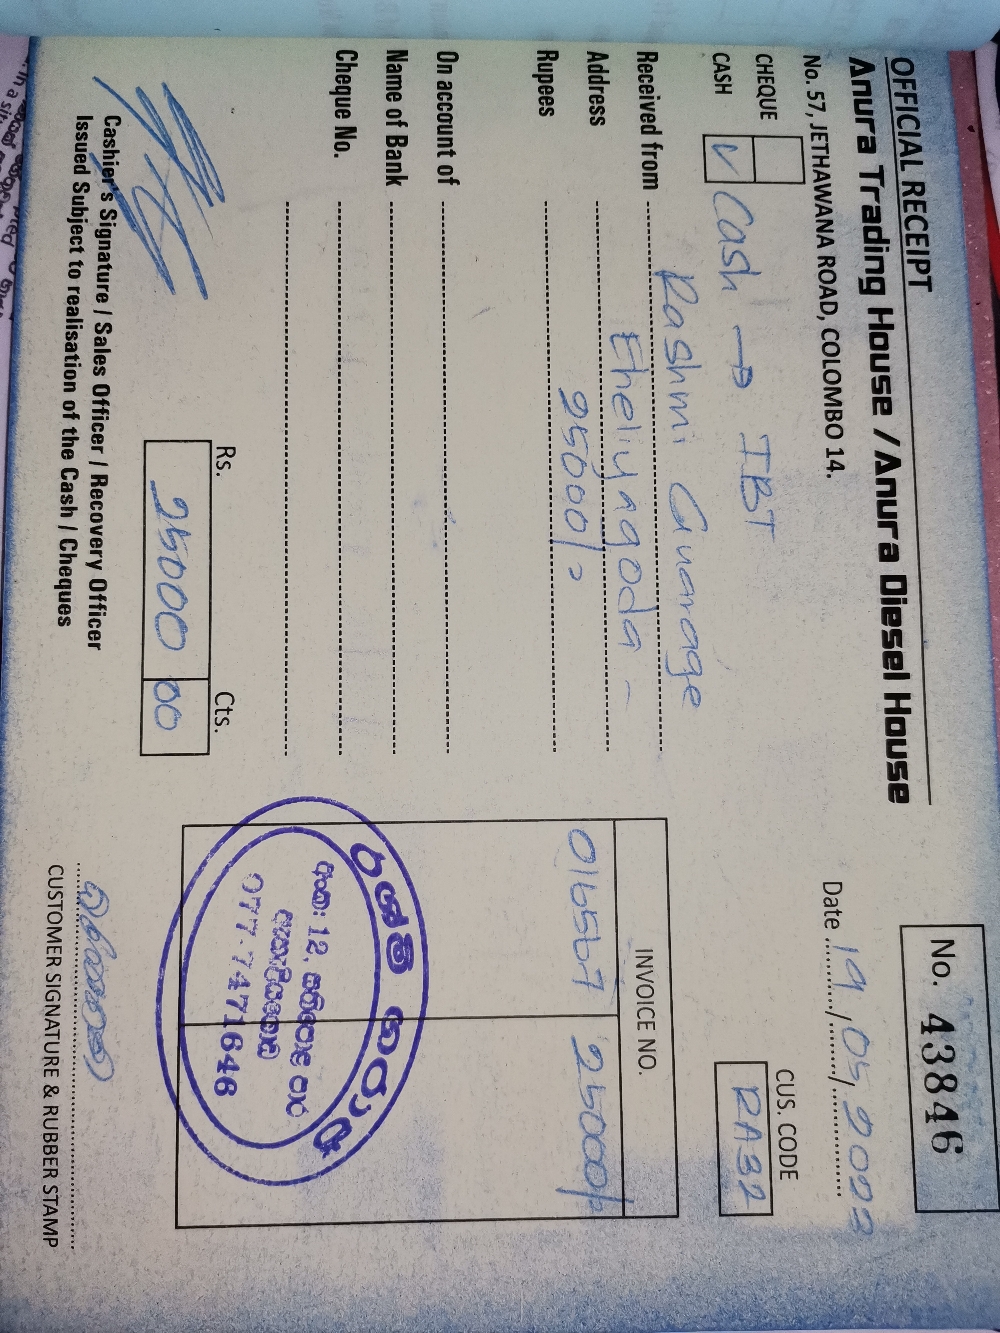 OFFICIAL RECEIPT
Anura Trading House / Anura Diesel House
No. 57, JETHAWANA ROAD, COLOMBO 14.
No. 43846
Date 19/05/2023
CHEQUE
CASH ✓ Cash → TBT
CUS. CODE
RA32
Received from Rashmi Guarage
Address Eheliyagoda -
Rupees 25000/=
On account of
Name of Bank
Cheque No.
INVOICE NO.
016567 25000/=
රශ්මි ගරාජ්
අංක: 12,
ඇහැලියගොඩ
077-7471646
Rs. Cts.
25000 00
Cashier's Signature / Sales Officer / Recovery Officer
Issued Subject to realisation of the Cash / Cheques
CUSTOMER SIGNATURE & RUBBER STAMP